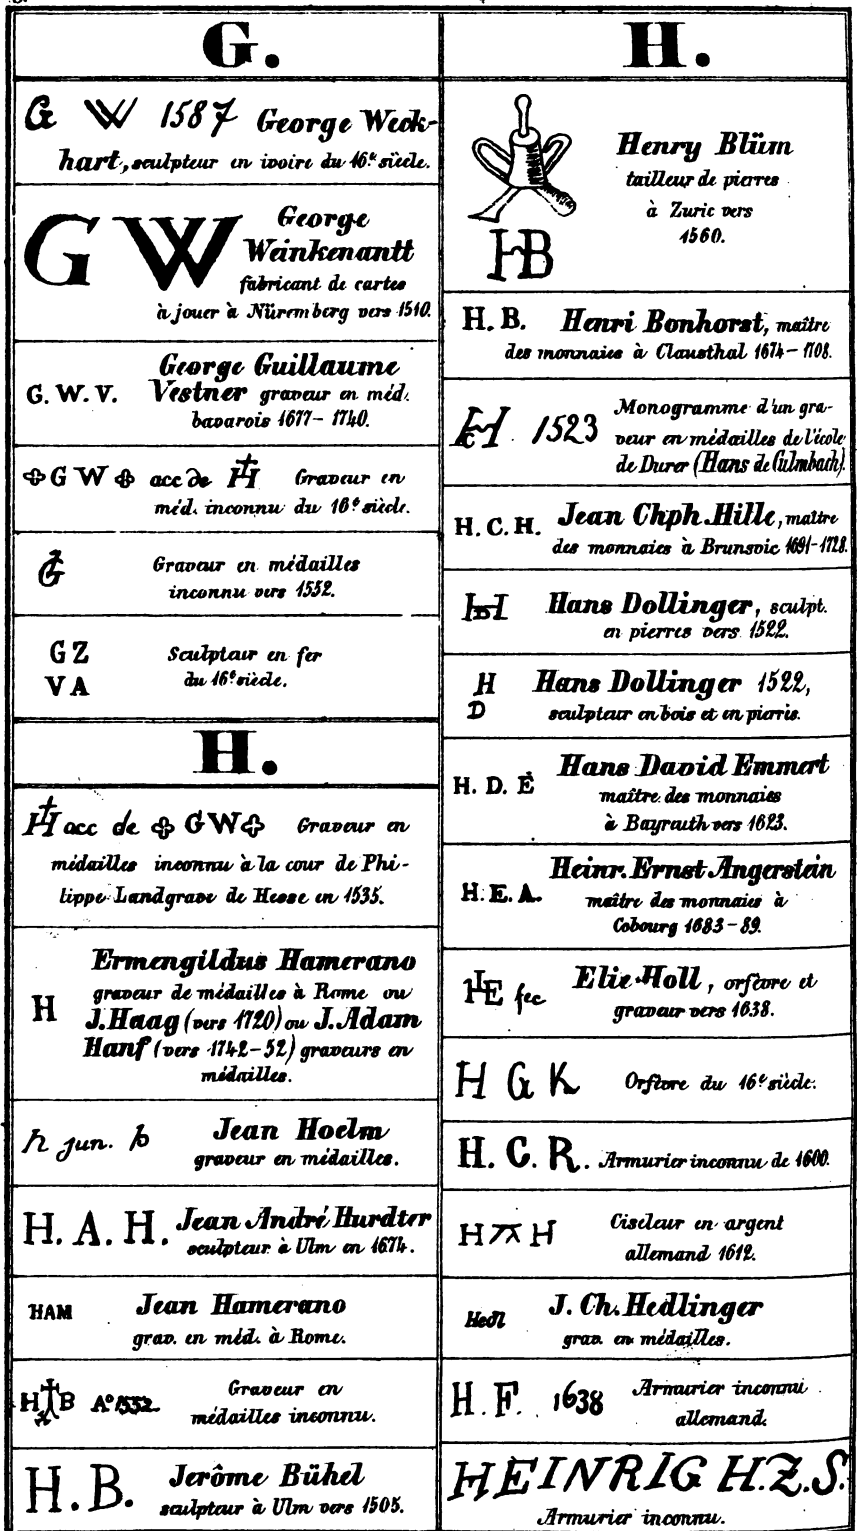 G.
G W 1587 George Weck-
hart, sculpteur en ivoire du 16e siècle.
G W George
Weinkenantt
fabricant de cartes
à jouer à Nüremberg vers 1510.
George Guillaume
G. W. V. Vestner graveur en méd.
bavarois 1677 – 1740.
G W acc de H Graveur en
méd. inconnu du 16e siècle.
G Graveur en médailles
inconnu vers 1552.
G Z Sculpteur en fer
V A du 16e siècle.
H.
H acc de G W Graveur en
médailles inconnu à la cour de Phi-
lippe Landgrave de Hesse en 1535.
Ermengildus Hamerano
graveur de médailles à Rome ou
H J. Haag (vers 1720) ou J. Adam
Hanf (vers 1742–52) graveurs en
médailles.
h jun. b Jean Hoelm
graveur en médailles.
H. A. H. Jean André Hurdter
sculpteur à Ulm en 1674.
HAM Jean Hamerano
grav. en méd. à Rome.
H B Ao 1532 Graveur en
médailles inconnu.
H. B. Jerôme Bühel
sculpteur à Ulm vers 1505.
H.
Henry Blüm
tailleur de pierres
à Zuric vers
1560.
HB
H. B. Henri Bonhorst, maître
des monnaies à Clausthal 1674 – 1708.
1523 Monogramme d'un gra-
veur en médailles de l'école
de Durer (Hans de Culmbach).
H. C. H. Jean Chph. Hille, maître
des monnaies à Brunsvic 1691–1728.
Hans Dollinger, sculpt.
en pierres vers 1522.
H Hans Dollinger 1522,
D sculpteur en bois et en pierres.
Hans David Emmert
H. D. E maître des monnaies
à Bayreuth vers 1623.
Heinr. Ernst Angerstein
H. E. A. maître des monnaies à
Cobourg 1683 – 89.
HE fec Elie Holl, orfèvre et
graveur vers 1638.
H G K Orfèvre du 16e siècle.
H. C. R. Armurier inconnu de 1600.
H H Ciseleur en argent
allemand 1612.
Hedl J. Ch. Hedlinger
grav. en médailles.
H. F. 1638 Armurier inconnu
allemand.
HEINRIG H. Z. S.
Armurier inconnu.